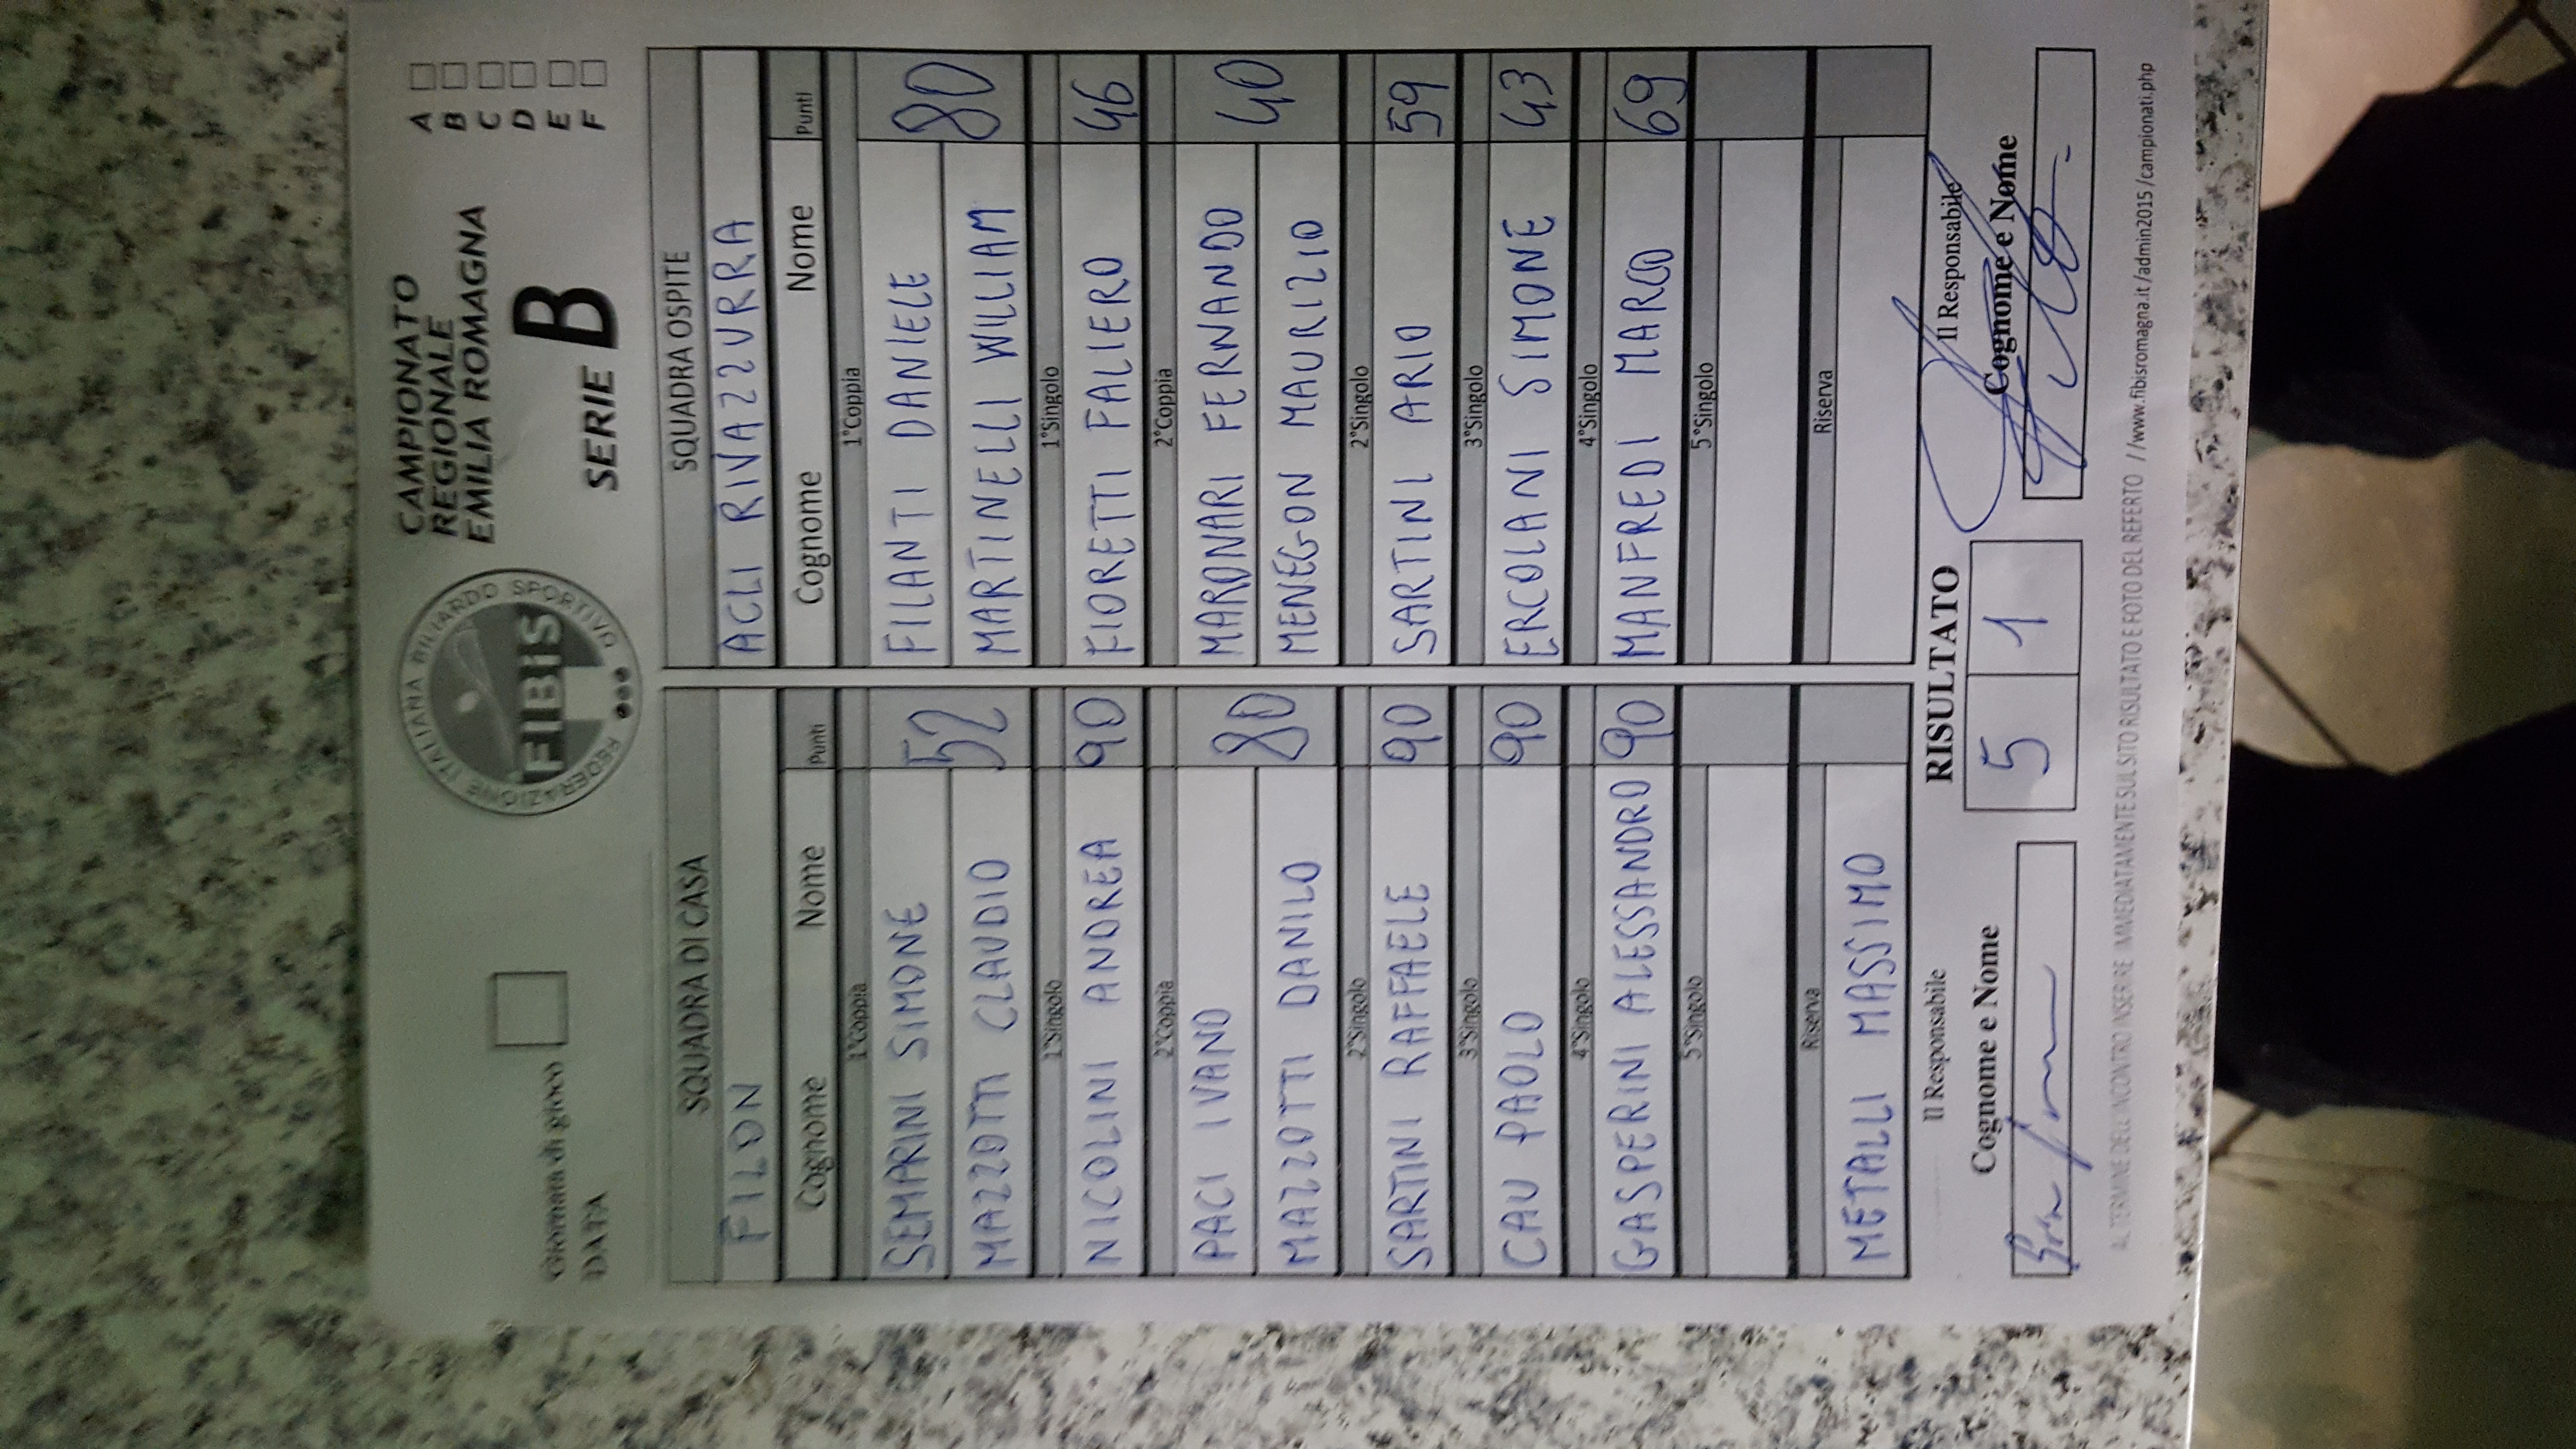 CAMPIONATO
REGIONALE
EMILIA ROMAGNA
SERIE B
A
B
C
D
E
F
FEDERAZIONE ITALIANA BILIARDO SPORTIVO
FIBIS
Giornata di gioco
DATA
SQUADRA DI CASA
FILON
Cognome Nome Punti
1°Coppia
SEMPRINI SIMONE
MAZZOTTI CLAUDIO
52
1°Singolo
NICOLINI ANDREA 90
2°Coppia
PACI IVANO
MAZZOTTI DANILO
80
2°Singolo
SARTINI RAFFAELE 90
3°Singolo
CAU PAOLO 90
4°Singolo
GASPERINI ALESSANDRO 90
5°Singolo
Riserva
METALLI MASSIMO
SQUADRA OSPITE
ACLI RIVAZZURRA
Cognome Nome Punti
1°Coppia
FILANTI DANIELE
MARTINELLI WILLIAM
80
1°Singolo
FIORETTI FALIERO 46
2°Coppia
MARONARI FERNANDO
MENEGON MAURIZIO
40
2°Singolo
SARTINI ARIO 59
3°Singolo
ERCOLANI SIMONE 43
4°Singolo
MANFREDI MARCO 69
5°Singolo
Riserva
Il Responsabile
Cognome e Nome
RISULTATO
5 1
Il Responsabile
Cognome e Nome
AL TERMINE DELL'INCONTRO INSERIRE IMMEDIATAMENTE SUL SITO RISULTATO E FOTO DEL REFERTO //www.fibisromagna.it/admin2015/campionati.php